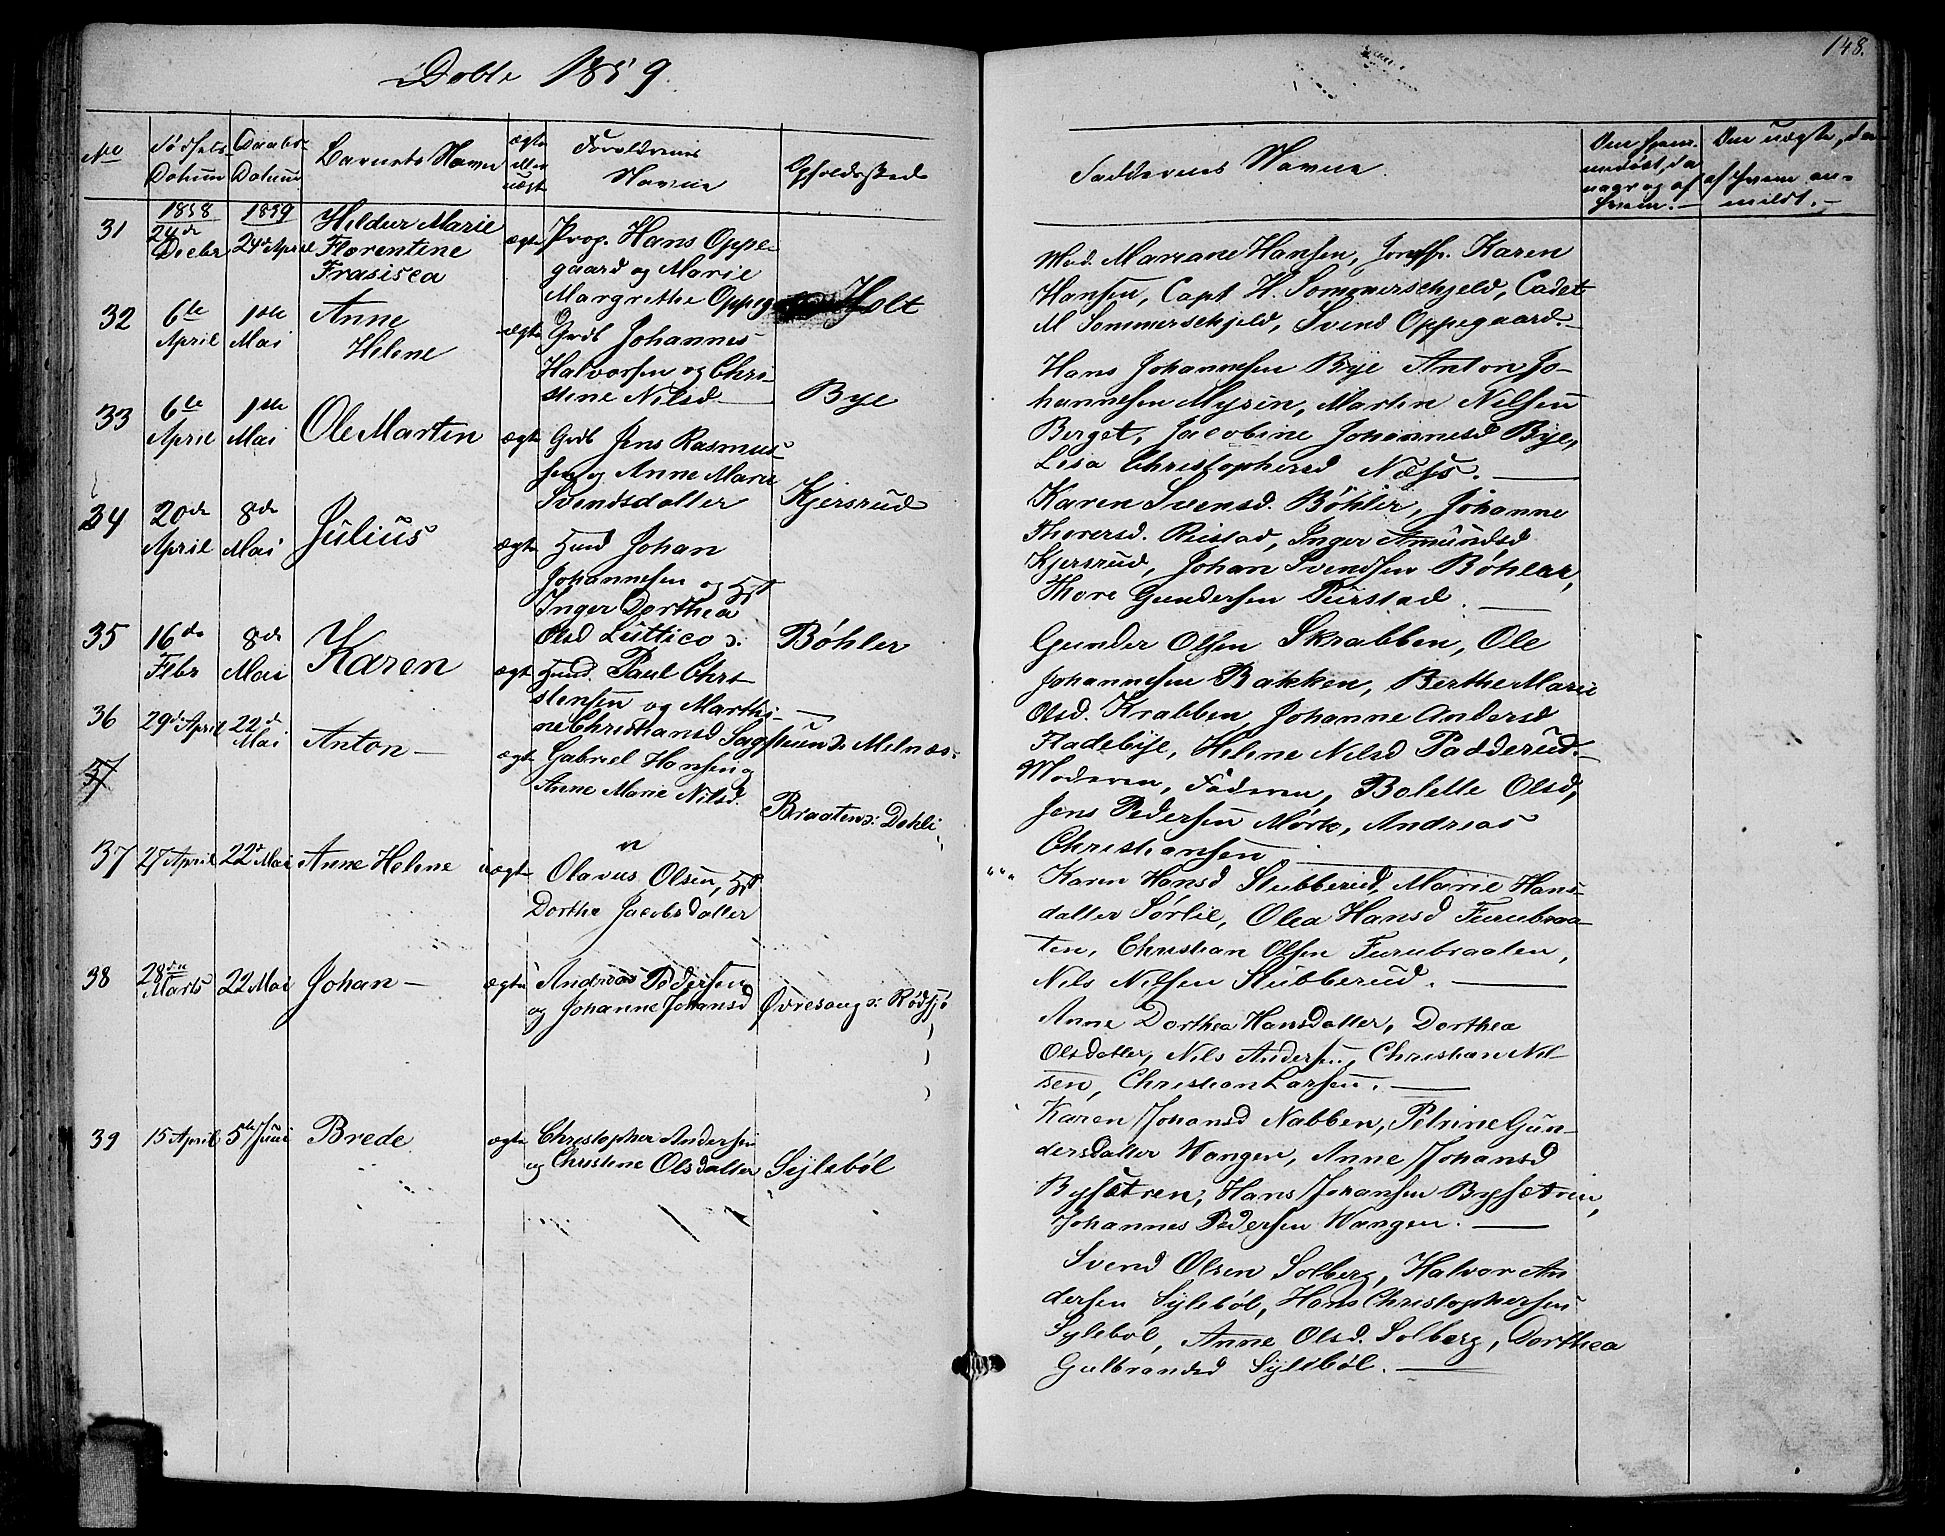 Døbte 1859.
No
Fødsels-
Datum
Daabs-
Datum
Barnets Navn
ægte
eller
uægte
Forældrenes
Navne
Opholdssted
31
1858
24de
Decbr
1859
24de April
Hildur Marie
Florentine
Frasisca
ægte
Prop. Hans Oppe-
gaard og Marie
Margrethe Oppeg
Holt
32
6te
April
1ste
Mai
Anne
Helene
ægte
Grdb Johannes
Halvorsen og Chri-
stine Nilsd
Bye
33
6te
April
1ste
Mai
Ole Martin
ægte
Grdb Jens Rasmus-
sen og Anne Marie
Svendsdatter
Kjersrud
34
20de
April
8de
Mai
Julius
ægte
Huusmd Johan
Johannesen og
Inger Dorthea
Olsd
Bøhler
35
16de
Febr
8de
Mai
Karen
ægte
Paul Chri-
stensen og Marthi-
ne Christiansd
Melnæs
36
29de April
22de
Mai
Anton
ægte
Gabriel Hansen og
Anne Marie Nilsd.
Braaten Dahli
37
37
27 April
22de Mai
Anne Helene
uægte
Olavus Olsen,
Dorthe Jacobsdatter
38
28de
Marts
22 Mai
Johan
ægte
Andreas Pedersen
og Johanne Johansd
Øvresaug Rødsjø
39
15 April
5te Juni
Brede
ægte
Christopher Andersen
og Christine Olsdatter
Sylebøl
148.
Faddernes Navne
Om hjem-
medøbt, da
naar og af
hvem.
Om uægte, da
af hvem an-
meldt.
Mad. Mariane Hansen, Jomfr. Karen
Hansen, Capt H. Sommerschjeld, Cadet
M Sommerschjeld, Svend Oppegaard.
Hans Johannesen Bye Anton Jo-
hannesen Myren, Martin Nilsen
Berget, Jacobine Johannesd Bye,
Lisa Christophersd Næss.
Karen Svensd. Bøhler, Johanne
Thorersd. Ristad, Inger Amundsd
Kjersrud, Johan Svendsen Bøhler,
Thore Gundersen
Gunder Olsen Skrabben, Ole
Johannesen Bakken, Berthe Marie
Olsd. Krabben, Johanne Andersd
Fladebye, Helene Nilsd Padderud.
Moderen, Faderen, Bolette Olsd,
Jens Pedersen Mørk, Andreas
Christiansen
Karen Hansd Stubberud, Marie Hans-
datter Sørlie, Olea Hansd Furubraa-
ten, Christian Olsen Furubraaten,
Nils Nilsen Stubberud.
Anne Dorthea Hansdatter, Dorthea
Olsdatter, Nils Andersen, Christian Nil-
sen, Christian Larsen.
Karen Johansd Nabben, Petrine Gun-
dersdatter Wangen, Anne Johansd
Bysætren, Hans Johansen Bysætren,
Johannes Pedersen Wangen.
Svend Olsen Solberg, Halvor An
dersen Sylebøl, Hans Christophersen
Sylebøl, Anne Olsd. Solberg, Dorthea
Gulbrandsd Sylebøl.